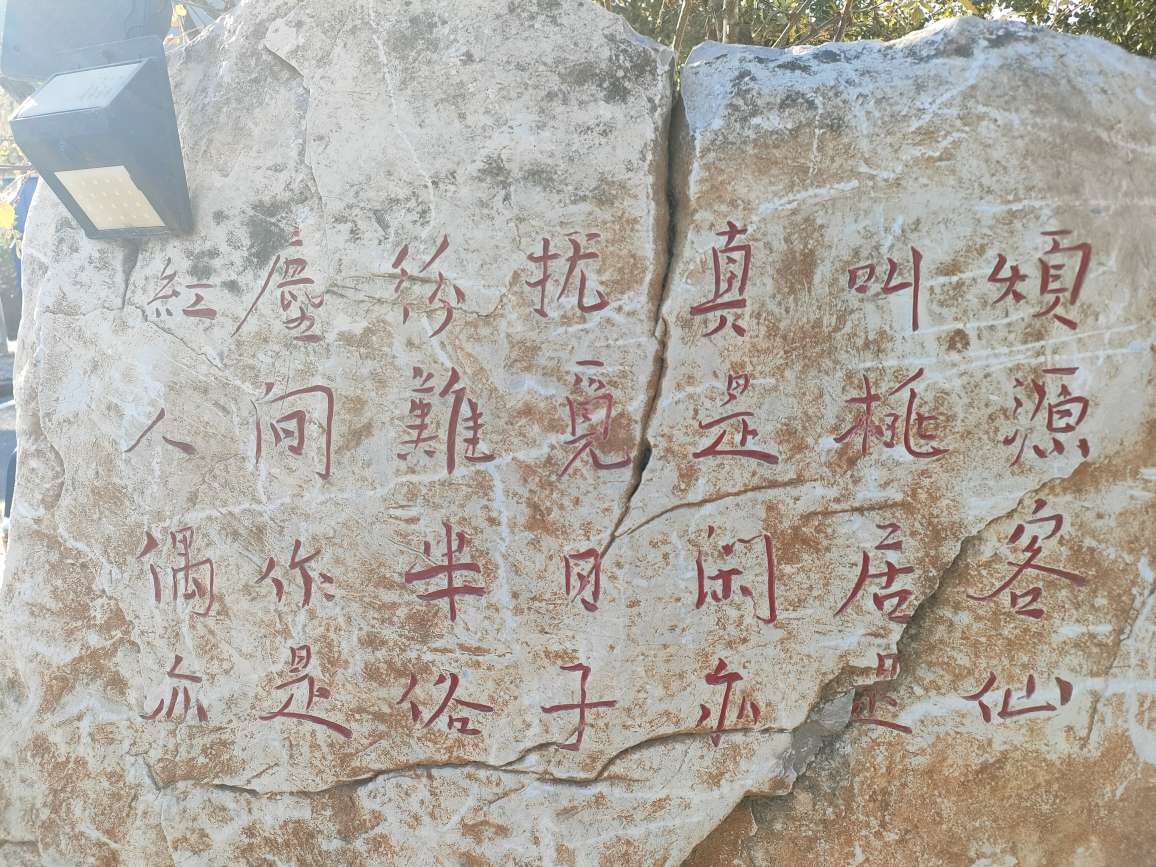 紅塵紛扰真叫煩
人間難覓是桃源
偶作半日閑居客
亦是俗子亦是仙